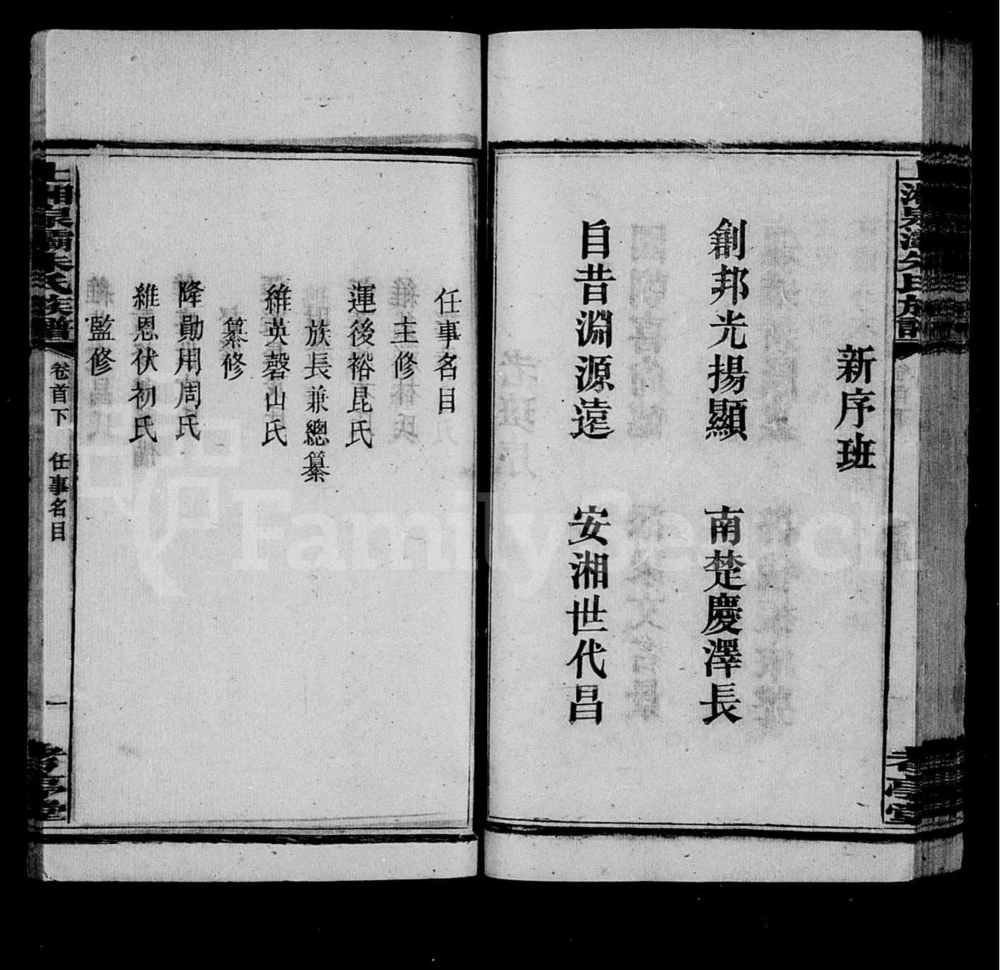 新序班
創邦光揚顯 南楚慶澤長
自昔淵源遠 安湘世代昌
考亭堂
任事名目
主修
運後裕昆氏
族長兼總纂
維英磬山氏
纂修
隆勛用周氏
維恩伏初氏
監修
上湘泉灞朱氏族譜 卷首下 任事名目 一 考亭堂
FamilySearch